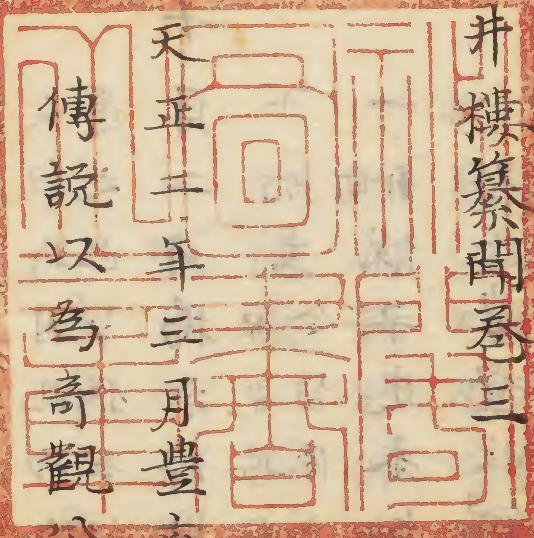 井樓纂聞卷三
天正二年三月豊
傳説以為奇觀